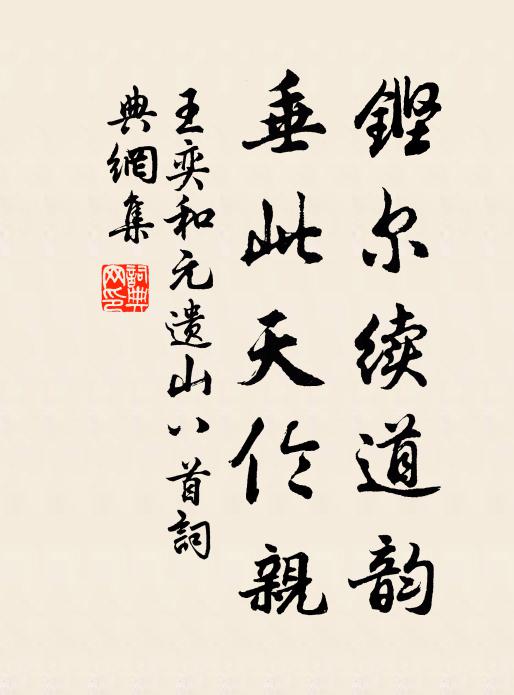 鏗尔续道韵
垂此天伦親
王奕和元遗山八首詞
典網集
詞典网印